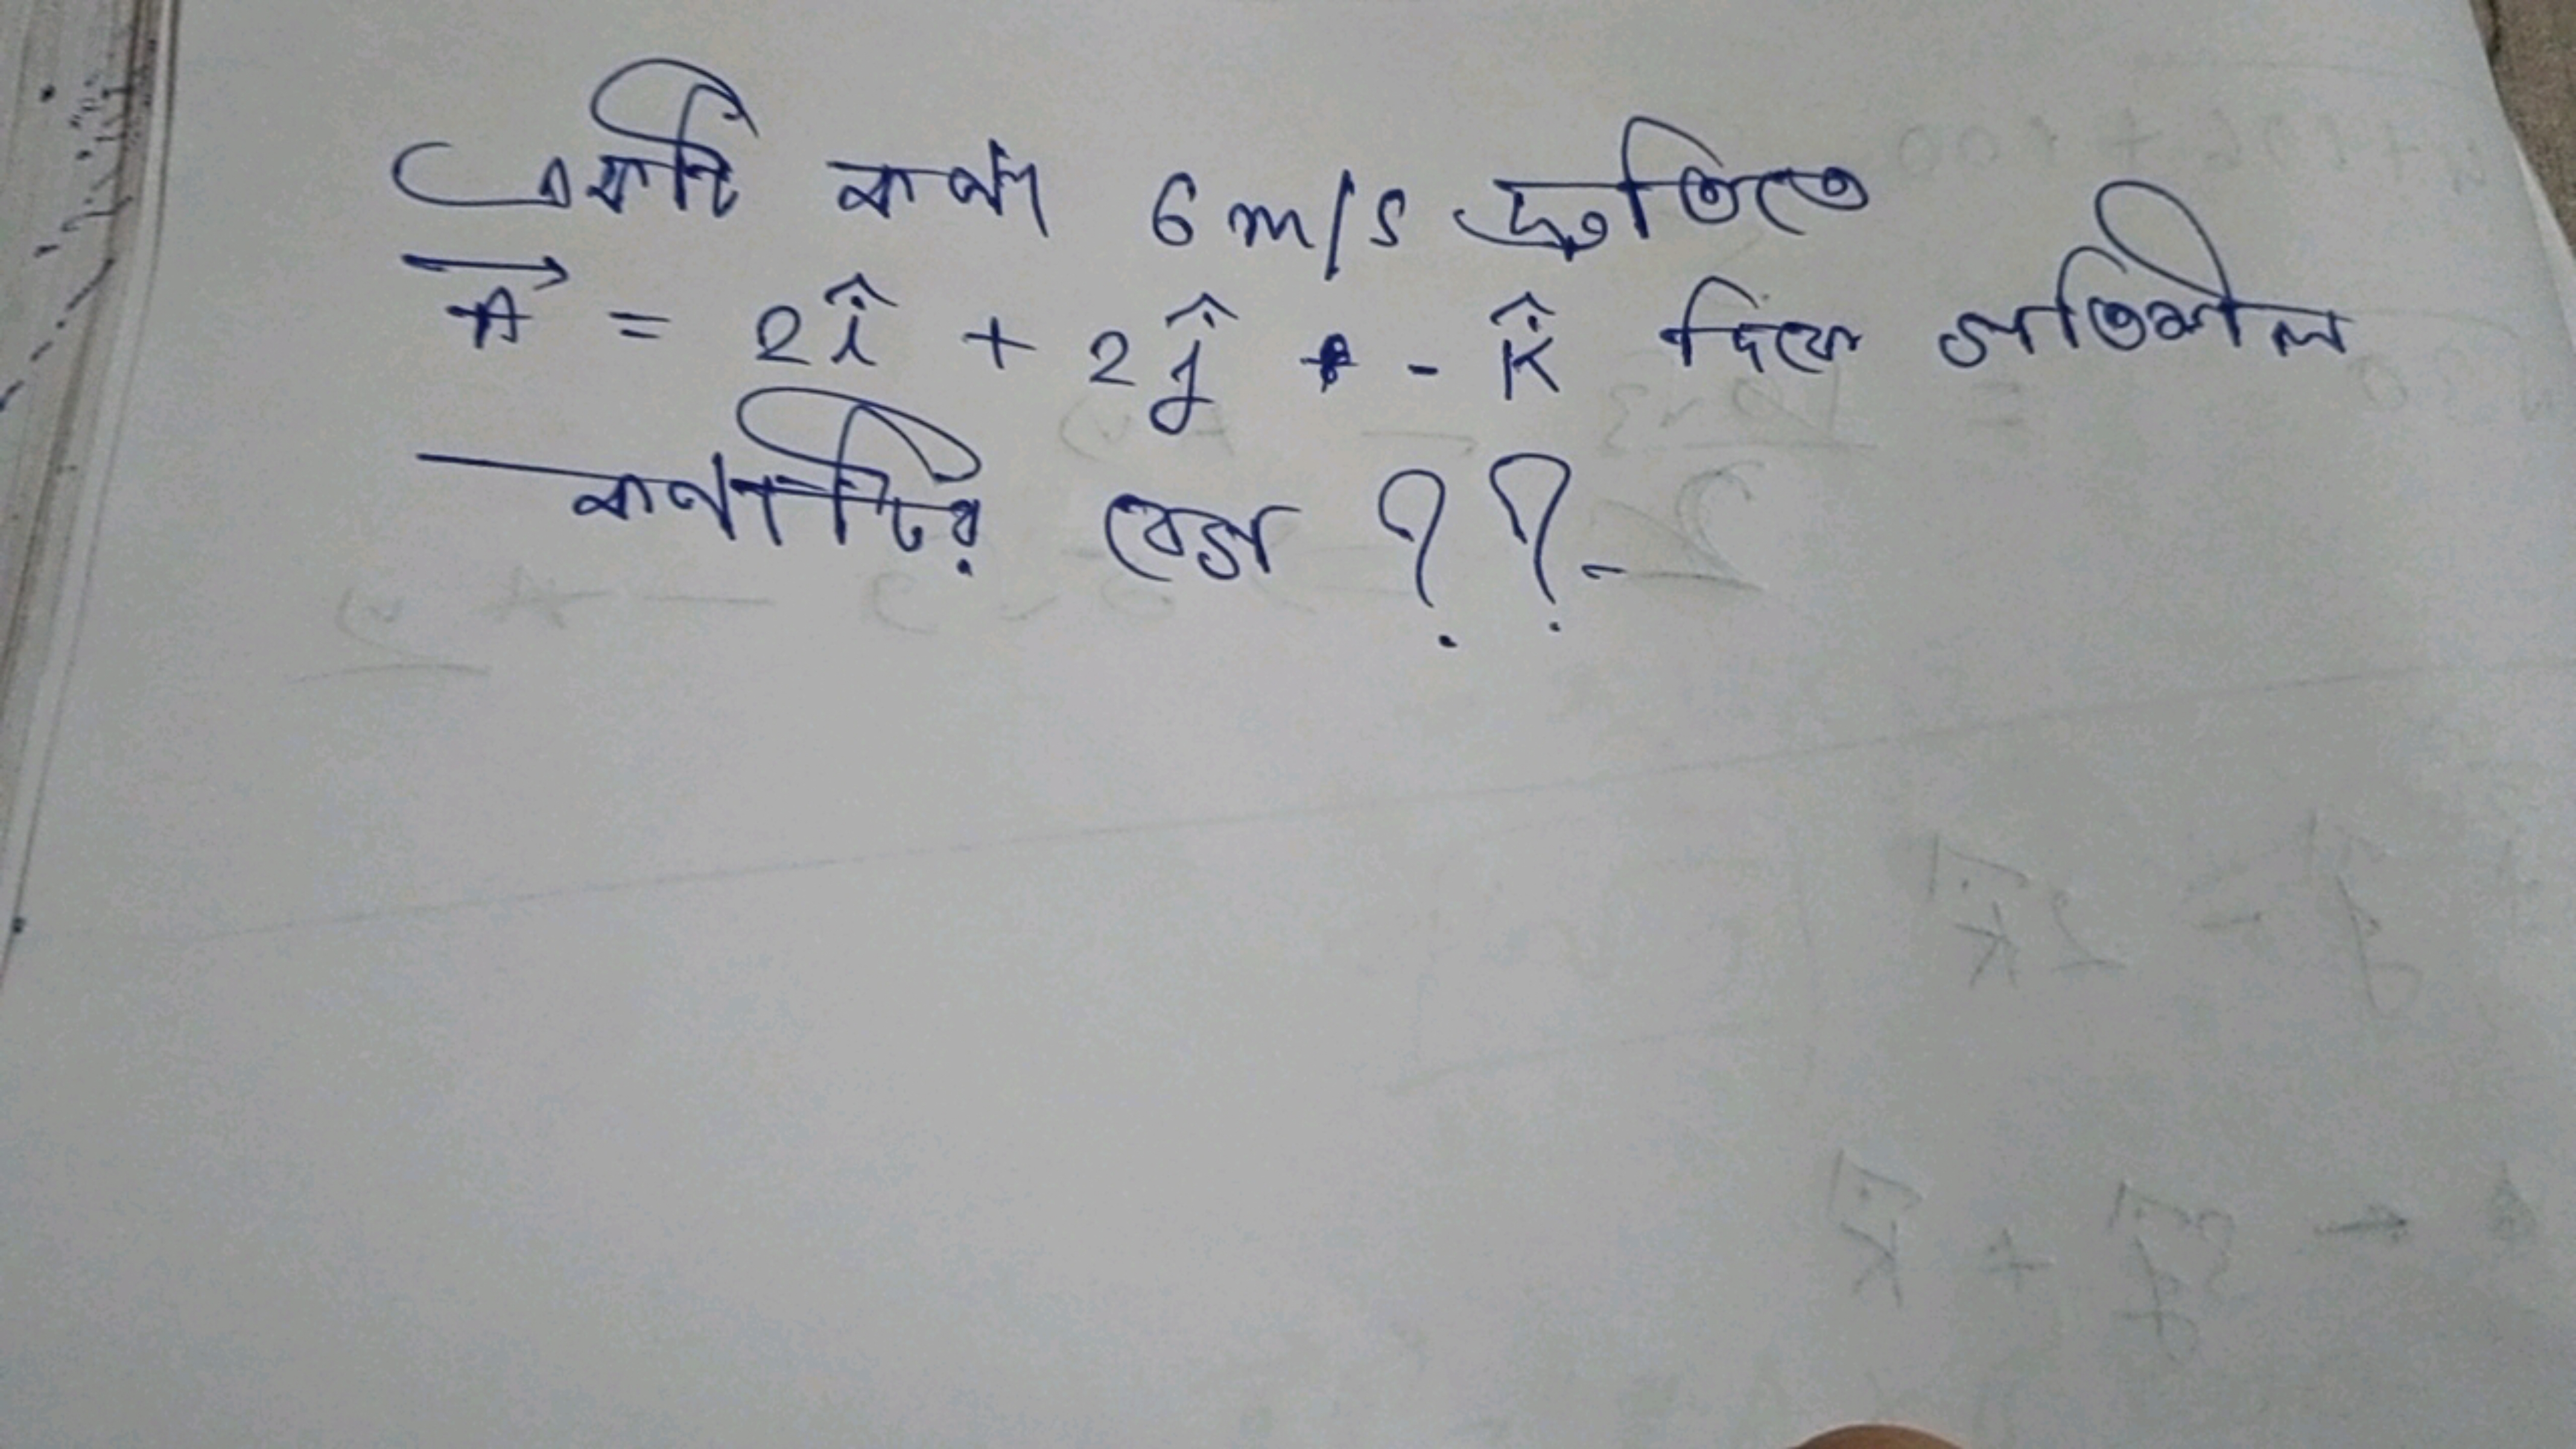 একটি কণা 6 m/s দ্রুতিতে
A⃗ = 2î + 2ĵ - k̂ দিকে গতিশীল
কণাটির বেগ ??